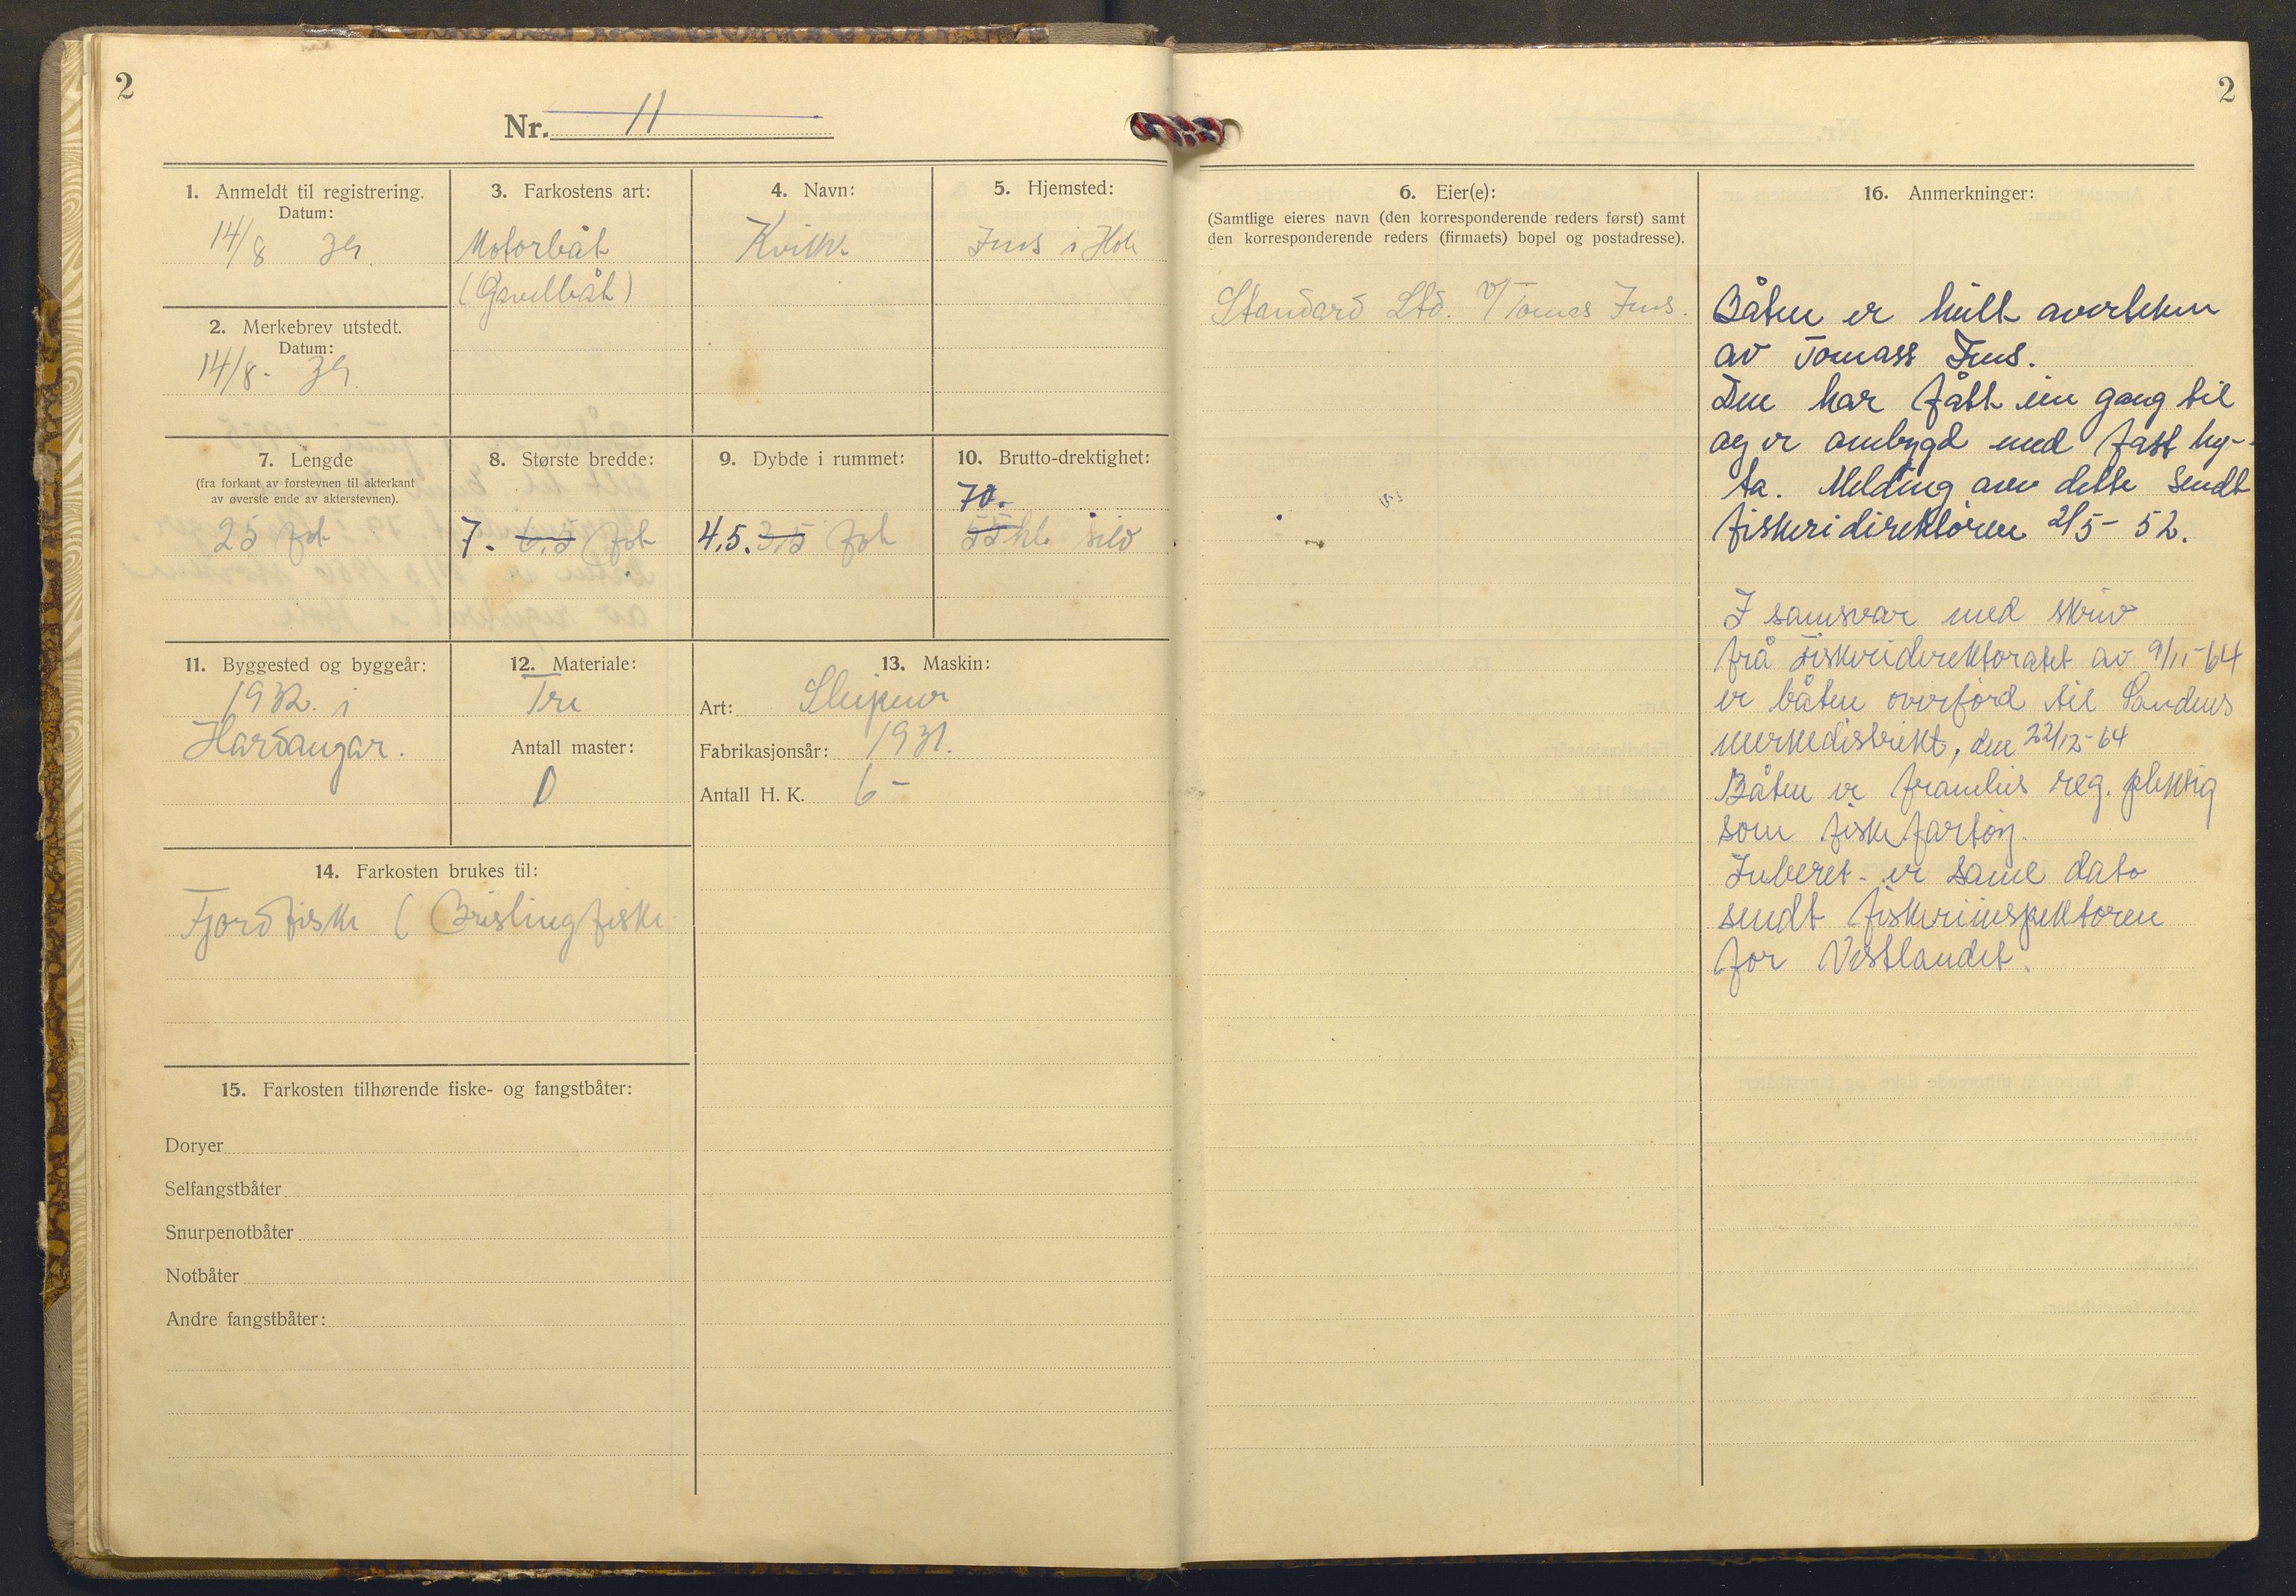 2
Nr. 11
1. Anmeldt til registrering.
Datum:
14/8 34
2. Merkebrev utstedt.
Datum:
14/8 - 34
3. Farkostens art:
Motorbåt
(Gavlbåt)
4. Navn:
Kvikk
5. Hjemsted:
Ims i Hole
7. Lengde
(fra forkant av forstevnen til akterkant
av øverste ende av akterstevnen).
25 fot
8. Største bredde:
7. 6,5 fot
9. Dybde i rummet:
4,5. 3,5 fot
10. Brutto-drektighet:
70.
55 hl. sild
11. Byggested og byggeår:
1932. i
Hardangar.
12. Materiale:
Tre
Antall master:
0
13. Maskin:
Art: Sleipner
Fabrikasjonsår: 1931.
Antall H. K. 6 -
14. Farkosten brukes til:
Fjordfiske ( Brislingfiske
15. Farkosten tilhørende fiske- og fangstbåter:
Doryer
Selfangstbåter
Snurpenotbåter
Notbåter
Andre fangstbåter:
2
6. Eier(e):
(Samtlige eieres navn (den korresponderende reders først) samt
den korresponderende reders (firmaets) bopel og postadresse).
Standard Ltd. v/Tomas Ims.
16. Anmerkninger:
Båten er heilt overteken
av Tomass Ims.
Den har fått ein gang til
og er ombygd med fast hy-
ta. Melding om dette sendt
fiskeridirektören 2/5 - 52.
I samsvar med skriv
frå Fiskeridirektoratet av 9/11-64
er båten overförd til Sandnes
merkedistrikt, den 22/12-64
Båten er framleis reg. pliktig
som fiskefartöy.
Inberet. er same dato
sendt fiskeriinspektören
for Vestlandet.